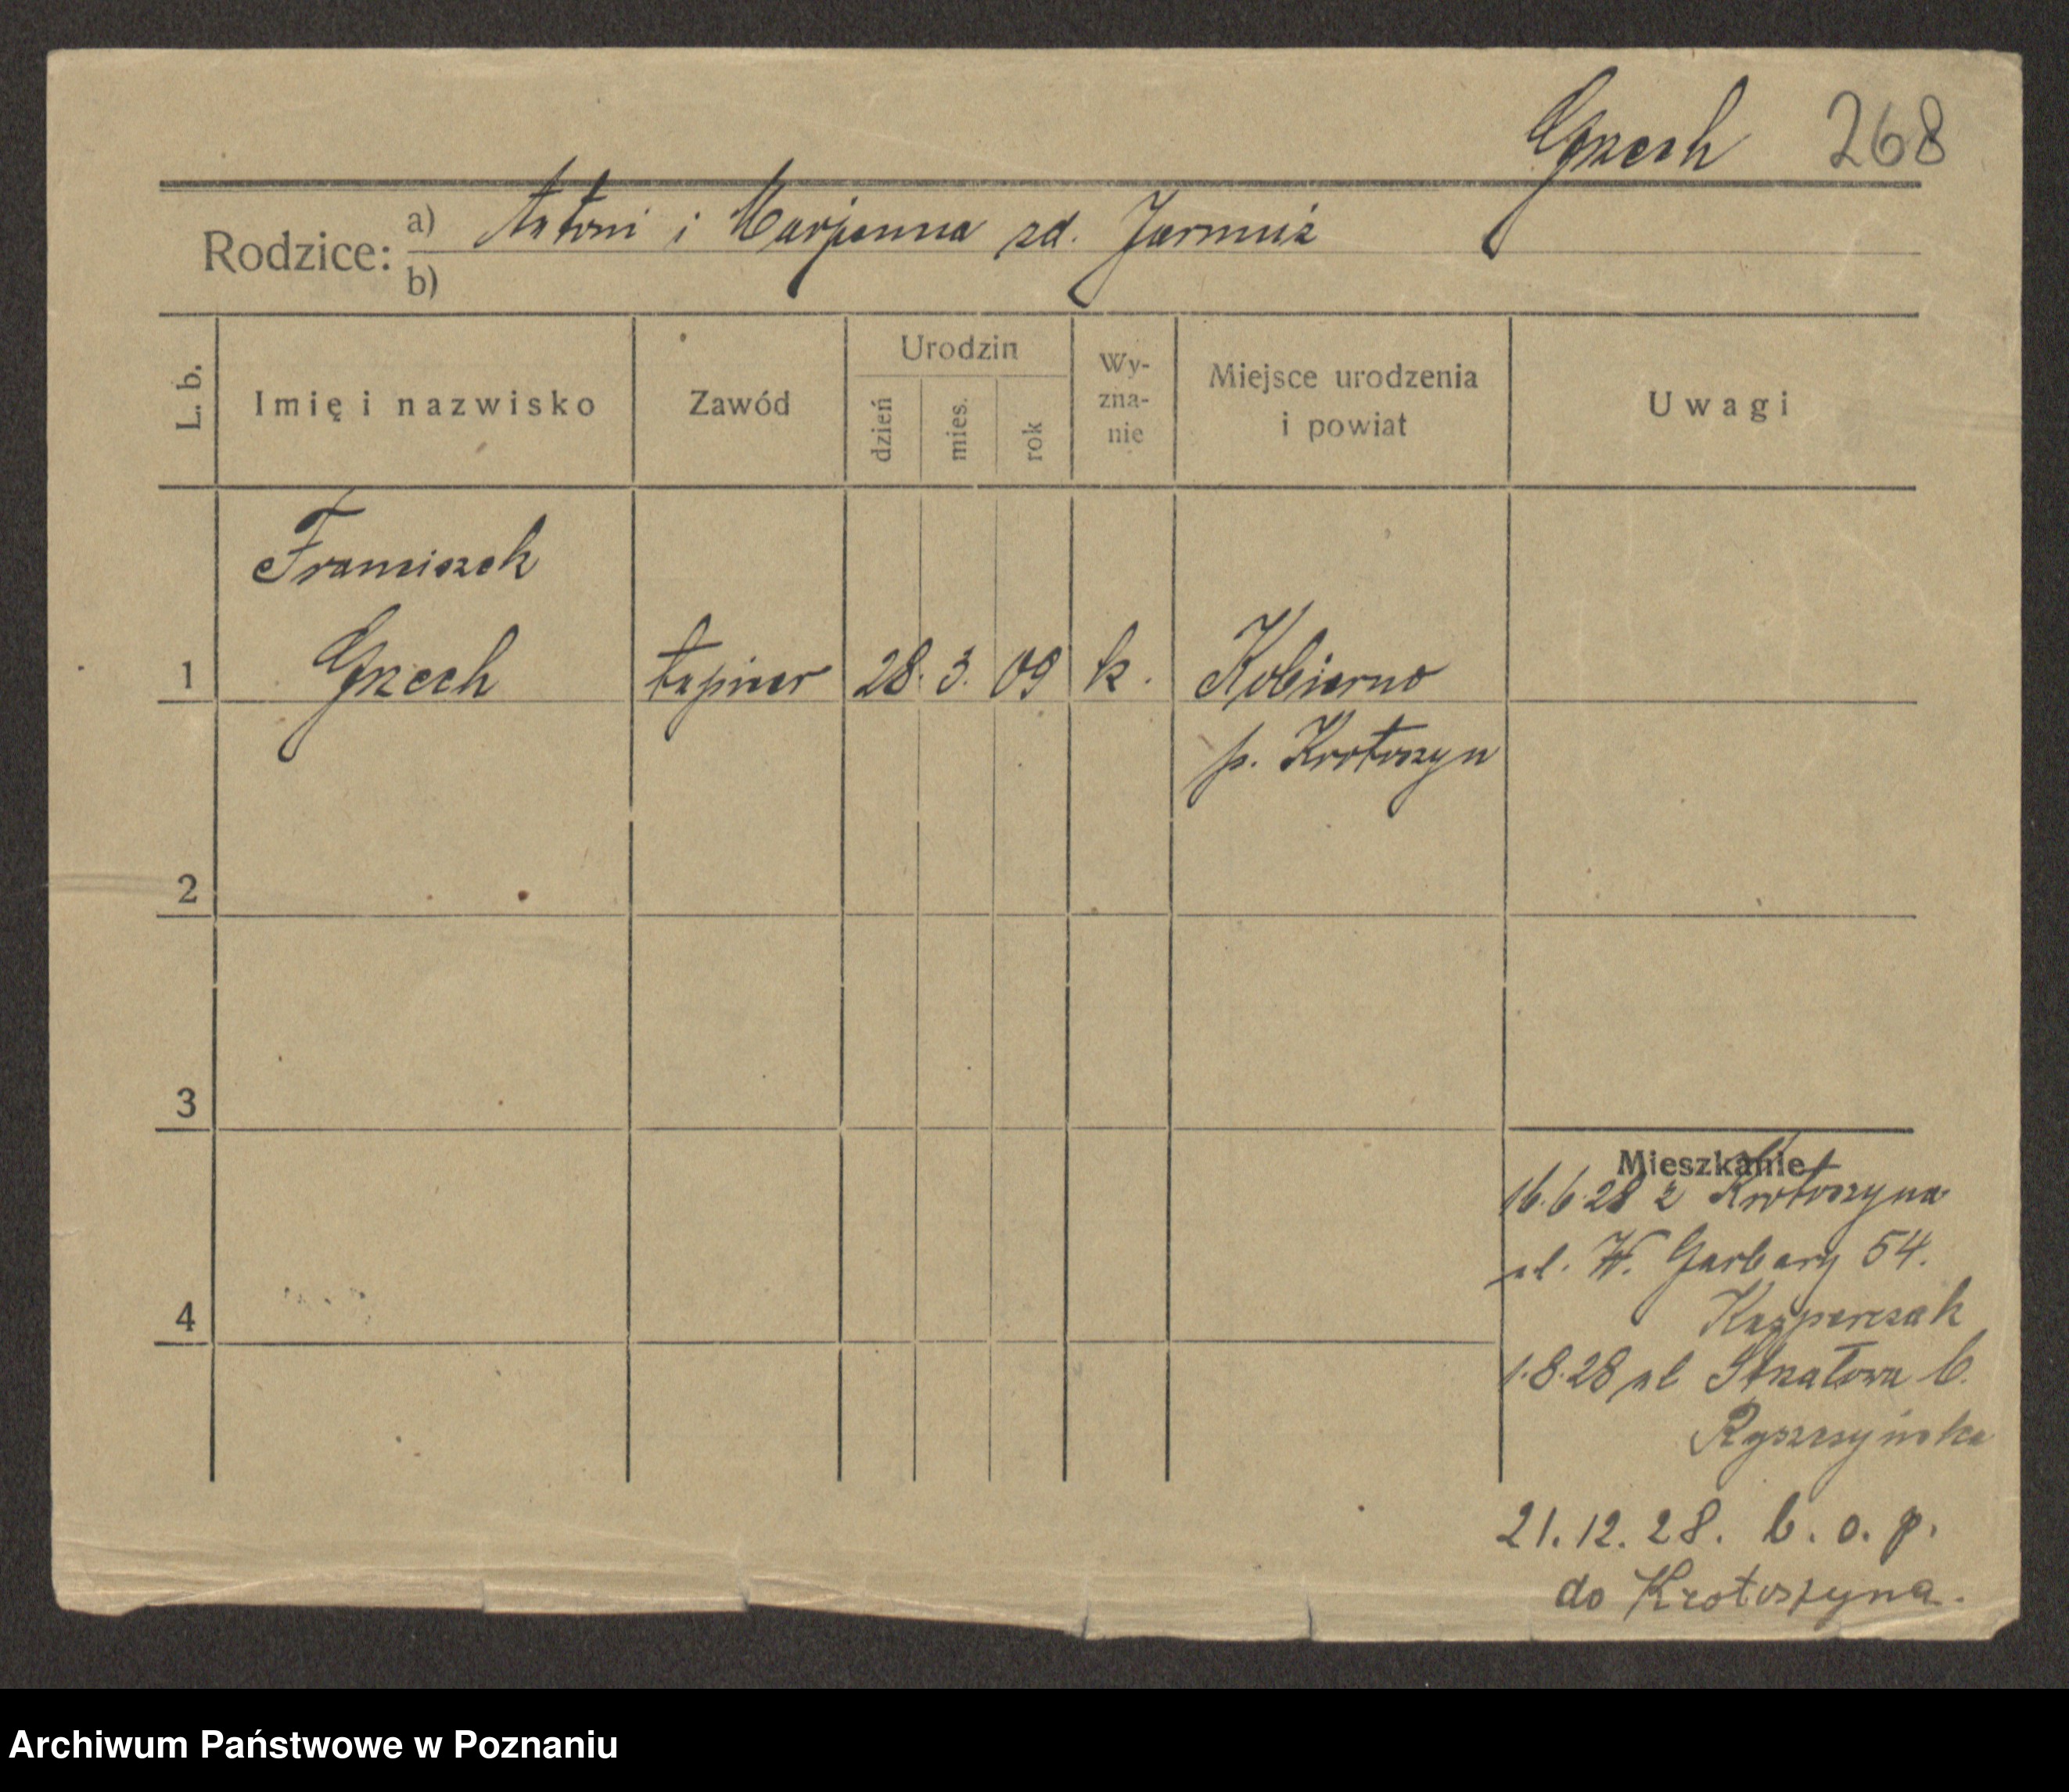 Grzech 268
Rodzice: a) Antoni i Marjanna zd. Jarmuż
b)
L. b. Imię i nazwisko Zawód Urodzin dzień mies. rok Wy-zna-nie Miejsce urodzenia i powiat Uwagi
Franciszek
1 Grzech tapicer 28. 3. 09 k. Kobierno
p. Krotoszyn
2
3
Mieszkanie
16.6.28 z Krotoszyna
ul. W. Garbary 54.
4 Kasperczak
1.8.28 ul Strzałowa 6.
21.12.28. b. o. p.
do Krotoszyna.
Archiwum Państwowe w Poznaniu